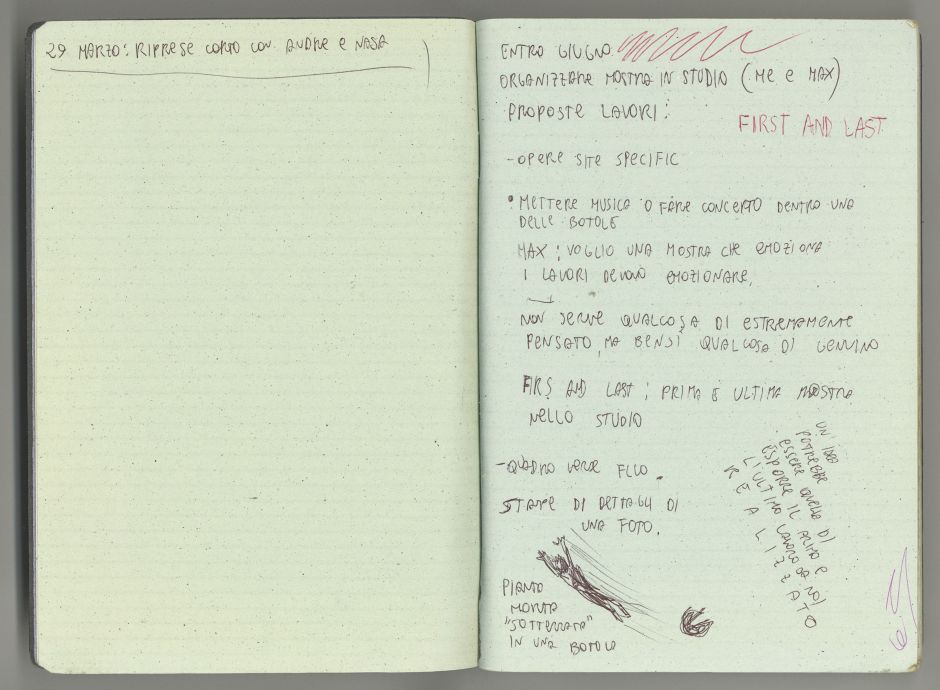 29 MARZO: RIPRESE CORTO CON ANDRE E NASA
ENTRO GIUGNO
ORGANIZZARE MOSTRA IN STUDIO (ME E MAX)
PROPOSTE LAVORI:
FIRST AND LAST
-OPERE SITE SPECIFIC
• METTERE MUSICA O FARE CONCERTO DENTRO UNA
DELLE BOTOLE
MAX: VOGLIO UNA MOSTRA CHE EMOZIONA
I LAVORI DEVONO EMOZIONARE.
NON SERVE QUALCOSA DI ESTREMAMENTE
PENSATO, MA BENSÌ QUALCOSA DI GENUINO
FIRS AND LAST: PRIMA E ULTIMA MOSTRA
NELLO STUDIO
-QUADRO VERDE FLUO.
STAMPE DI DETTAGLI DI
UNA FOTO.
UN'IDEA
POTREBBE
ESSERE QUELLA DI
ESPORRE IL PRIMO E
L'ULTIMO LAVORO DA NOI
REALIZZATO
PIANTA
MORTA
"SOTTERRATA"
IN UNA BOTOLA